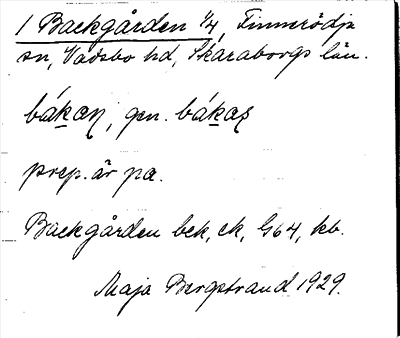 1 Backgården 1/4, Finnerödja
sn, Vadsbo hd, Skaraborgs län.
bákaṇ, gen. bákas
prep. är pa.
Backgården bek, ek, G64, kb.
Maja Bergstrand 1929.